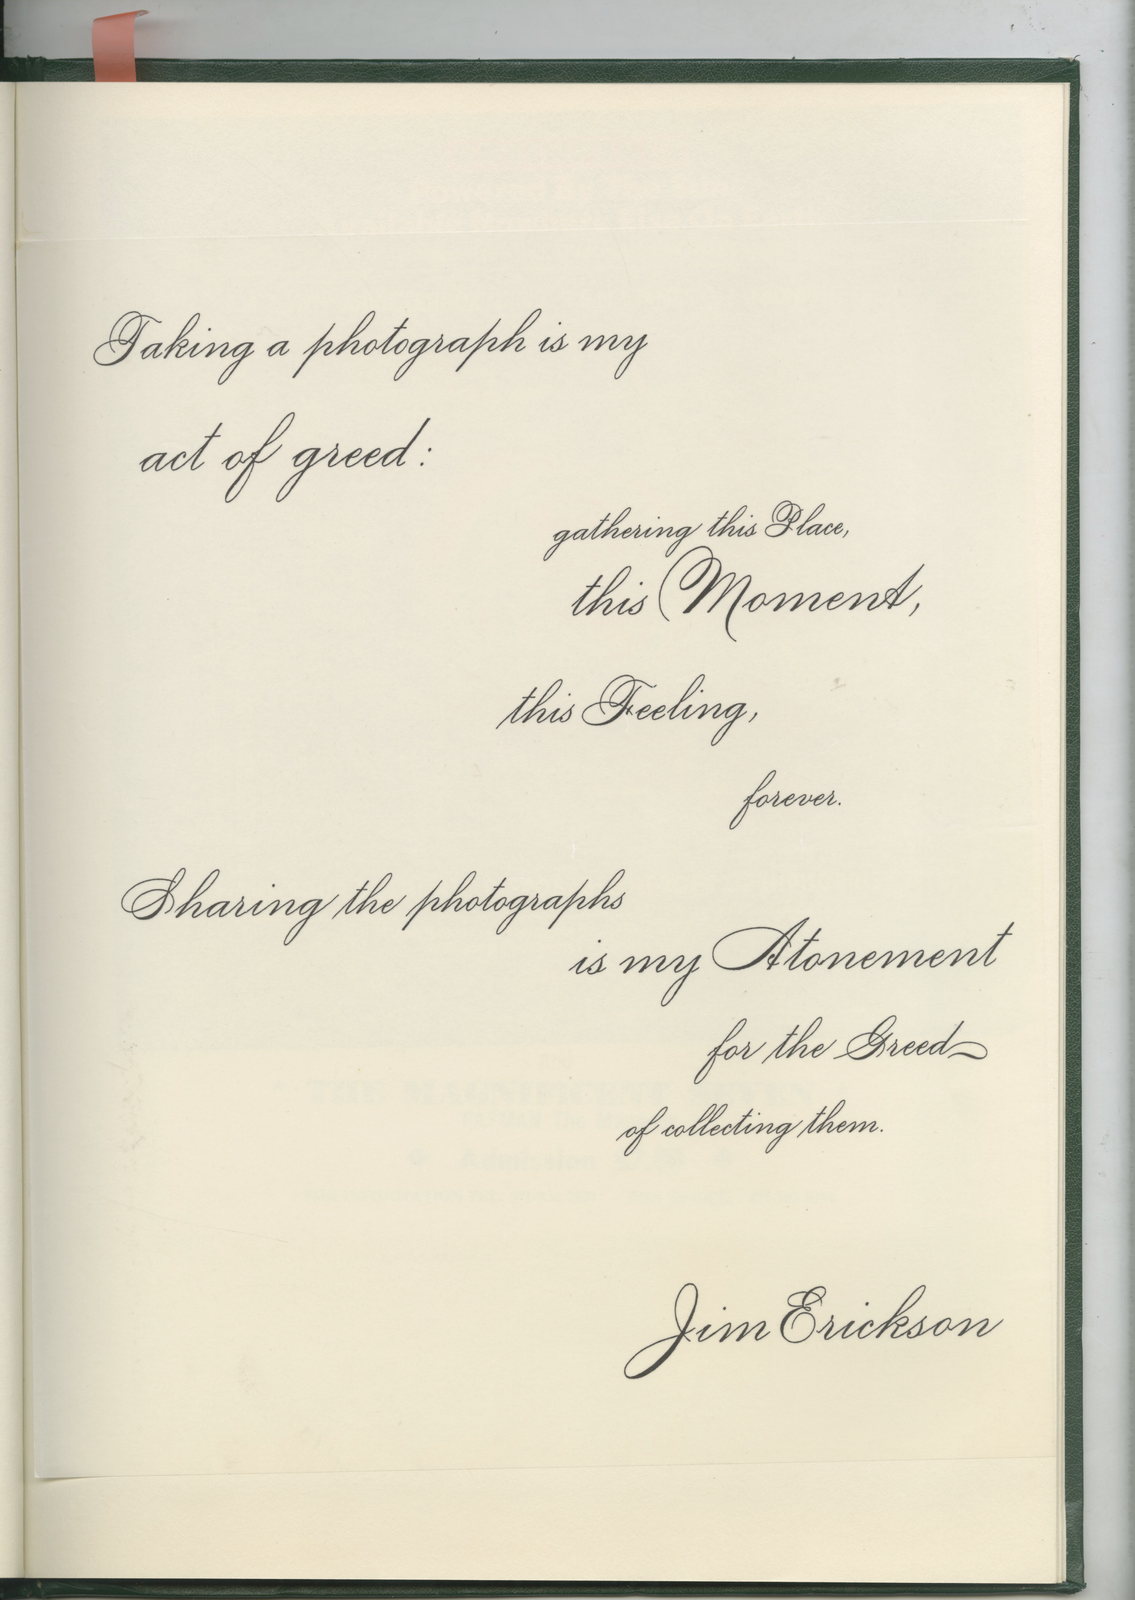 Taking a photograph is my
act of greed:
gathering this Place,
this Moment,
this Feeling,
forever.
Sharing the photographs
is my Atonement
for the Greed
of collecting them.
Jim Erickson